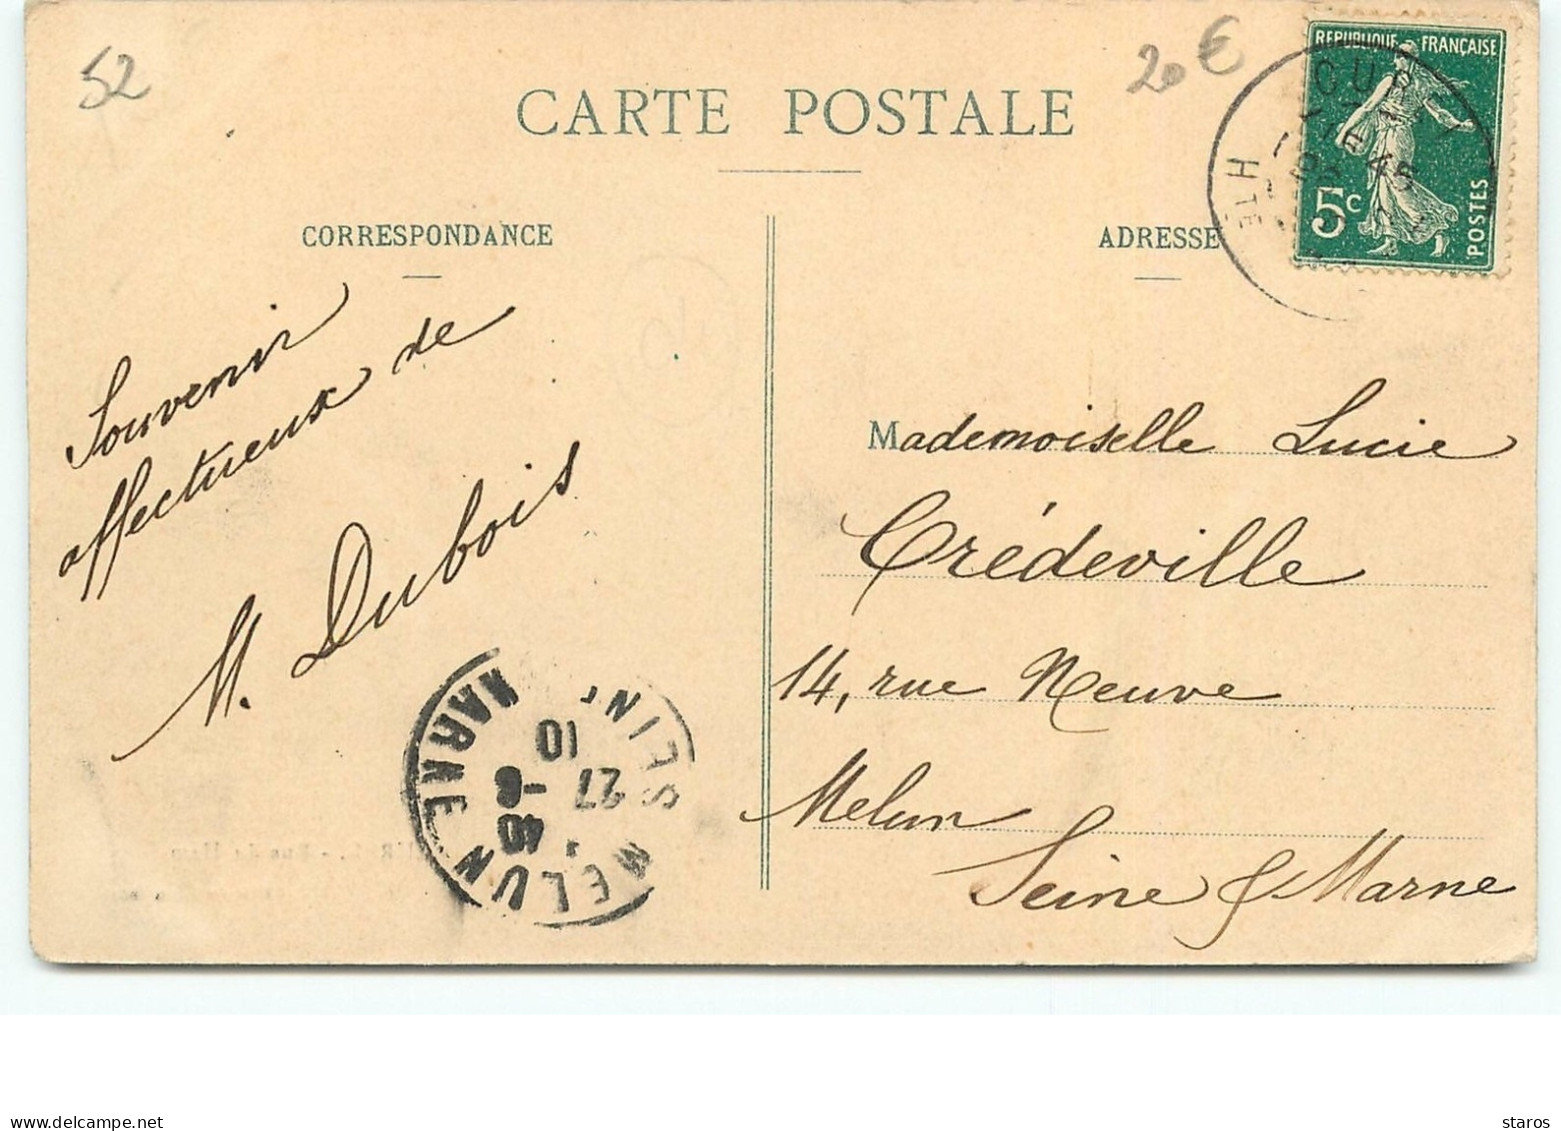 52
20 €
CARTE POSTALE
REPUBLIQUE FRANÇAISE
5c
POSTES
HTE
CORRESPONDANCE
ADRESSE
Souvenir
affectueux de
M. Dubois
Mademoiselle Lucie
Crédeville
14, rue Neuve
Melun
Seine & Marne
MELUN SEINE MARNE
10
27
staros
delcampe.net